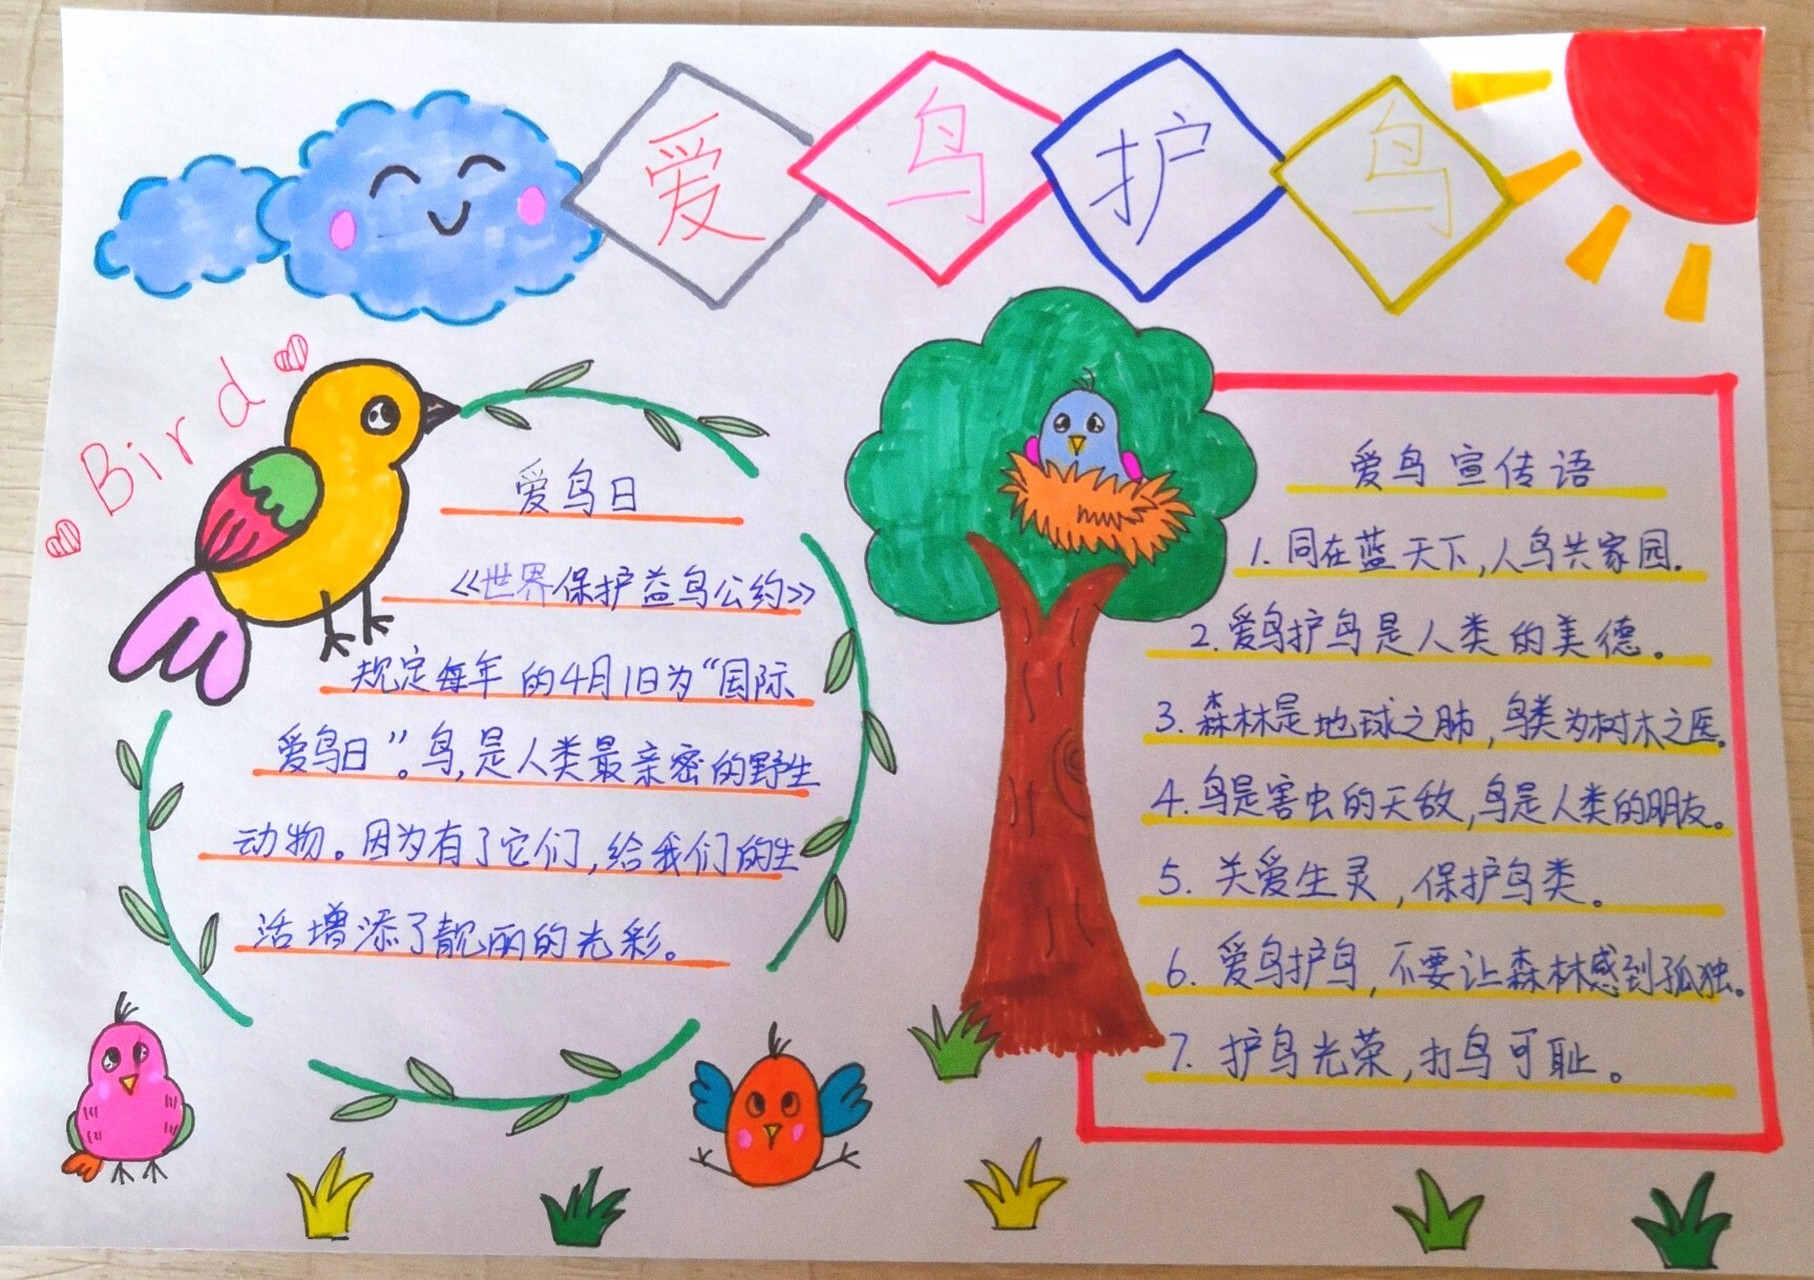 爱鸟护鸟
Bird
爱鸟日
《世界保护益鸟公约》
规定每年的4月1日为“国际
爱鸟日”。鸟,是人类最亲密的野生
动物。因为有了它们,给我们的生
活增添了靓丽的光彩。
爱鸟宣传语
1. 同在蓝天下,人鸟共家园.
2. 爱鸟护鸟是人类的美德。
3. 森林是地球之肺,鸟类为树木之医。
4. 鸟是害虫的天敌,鸟是人类的朋友。
5. 关爱生灵,保护鸟类。
6. 爱鸟护鸟,不要让森林感到孤独。
7. 护鸟光荣,打鸟可耻。